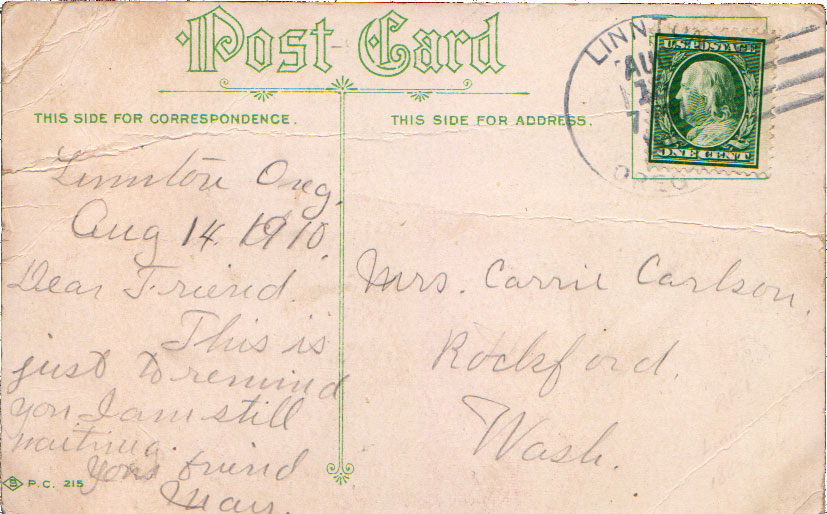 Post Card
THIS SIDE FOR CORRESPONDENCE.
THIS SIDE FOR ADDRESS.
LINNT
AU
7
OREG
U.S. POSTAGE
ONE CENT
Linnton Oreg.
Aug 14. 1910.
Dear Friend.
This is
just to remind
you I am still
waiting.
Your friend
Mrs. Carrie Carlson.
Rockford.
Wash.
P.C. 215